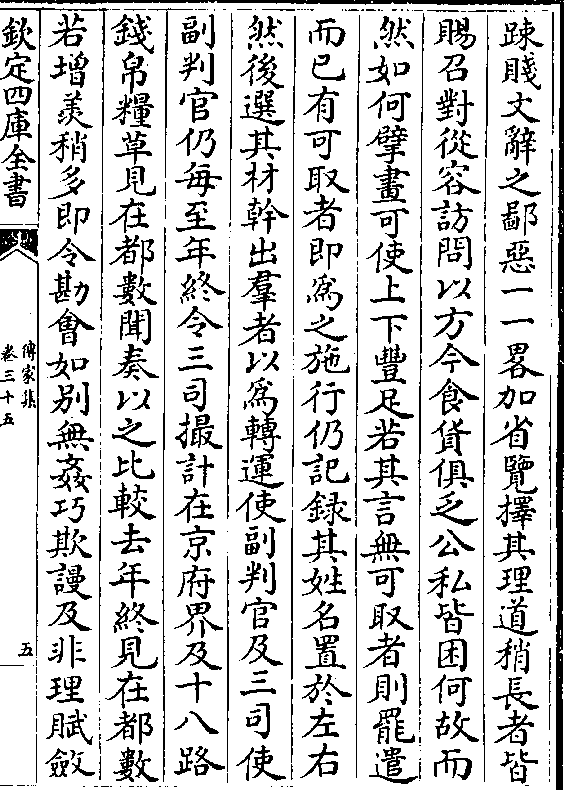 踈賤文辭之鄙惡一一畧加省覽擇其理道稍長者皆
賜召對從容訪問以方今食貨俱乏公私皆困何故而
然如何擘畫可使上下豐足若其言無可取者則罷遣
而已有可取者即為之施行仍記録其姓名置於左右
然後選其材幹出羣者以為轉運使副判官及三司使
副判官仍每至年終令三司撮計在京府界及十八路
錢帛糧草見在都數聞奏以之比較去年終見在都數
若增羨稍多即令勘會如別無姦巧欺謾及非理賦斂
欽定四庫全書
傳家集
卷三十五
五